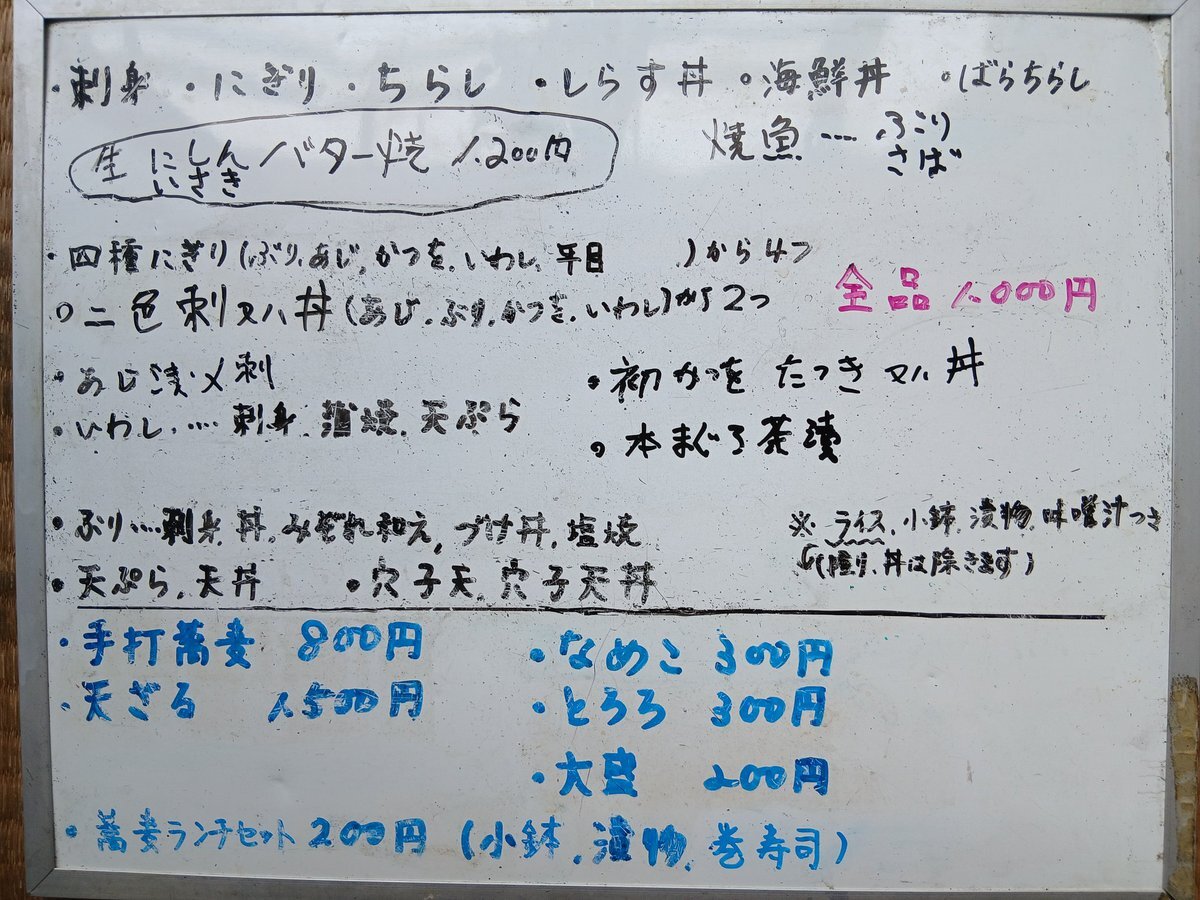 ・刺身 ・にぎり ・ちらし ・しらす丼 ・海鮮丼 ・ばらちらし
生 にしん いさき バター焼 1.200円
焼魚…ぶり さば
・四種にぎり(ぶり,あじ,かつを,いわし,平目 )から4つ
・二色刺又ハ丼(あじ,ぶり,かつを,いわし)から2つ
全品1.000円
・あじ漬〆刺
・初かつを たつき又ハ丼
・いわし……刺身,蒲焼,天ぷら
・本まぐろ茶漬
・ぶり……刺身,丼,みぞれ和え,づけ丼,塩焼
※ライス,小鉢,漬物,味噌汁つき
・天ぷら,天丼 ・穴子天,穴子天丼
(握り、丼は除きます)
・手打蕎麦 800円
・なめこ 300円
・天ざる 1.500円
・とろろ 300円
・大盛 200円
・蕎麦ランチセット200円(小鉢,漬物,巻寿司)